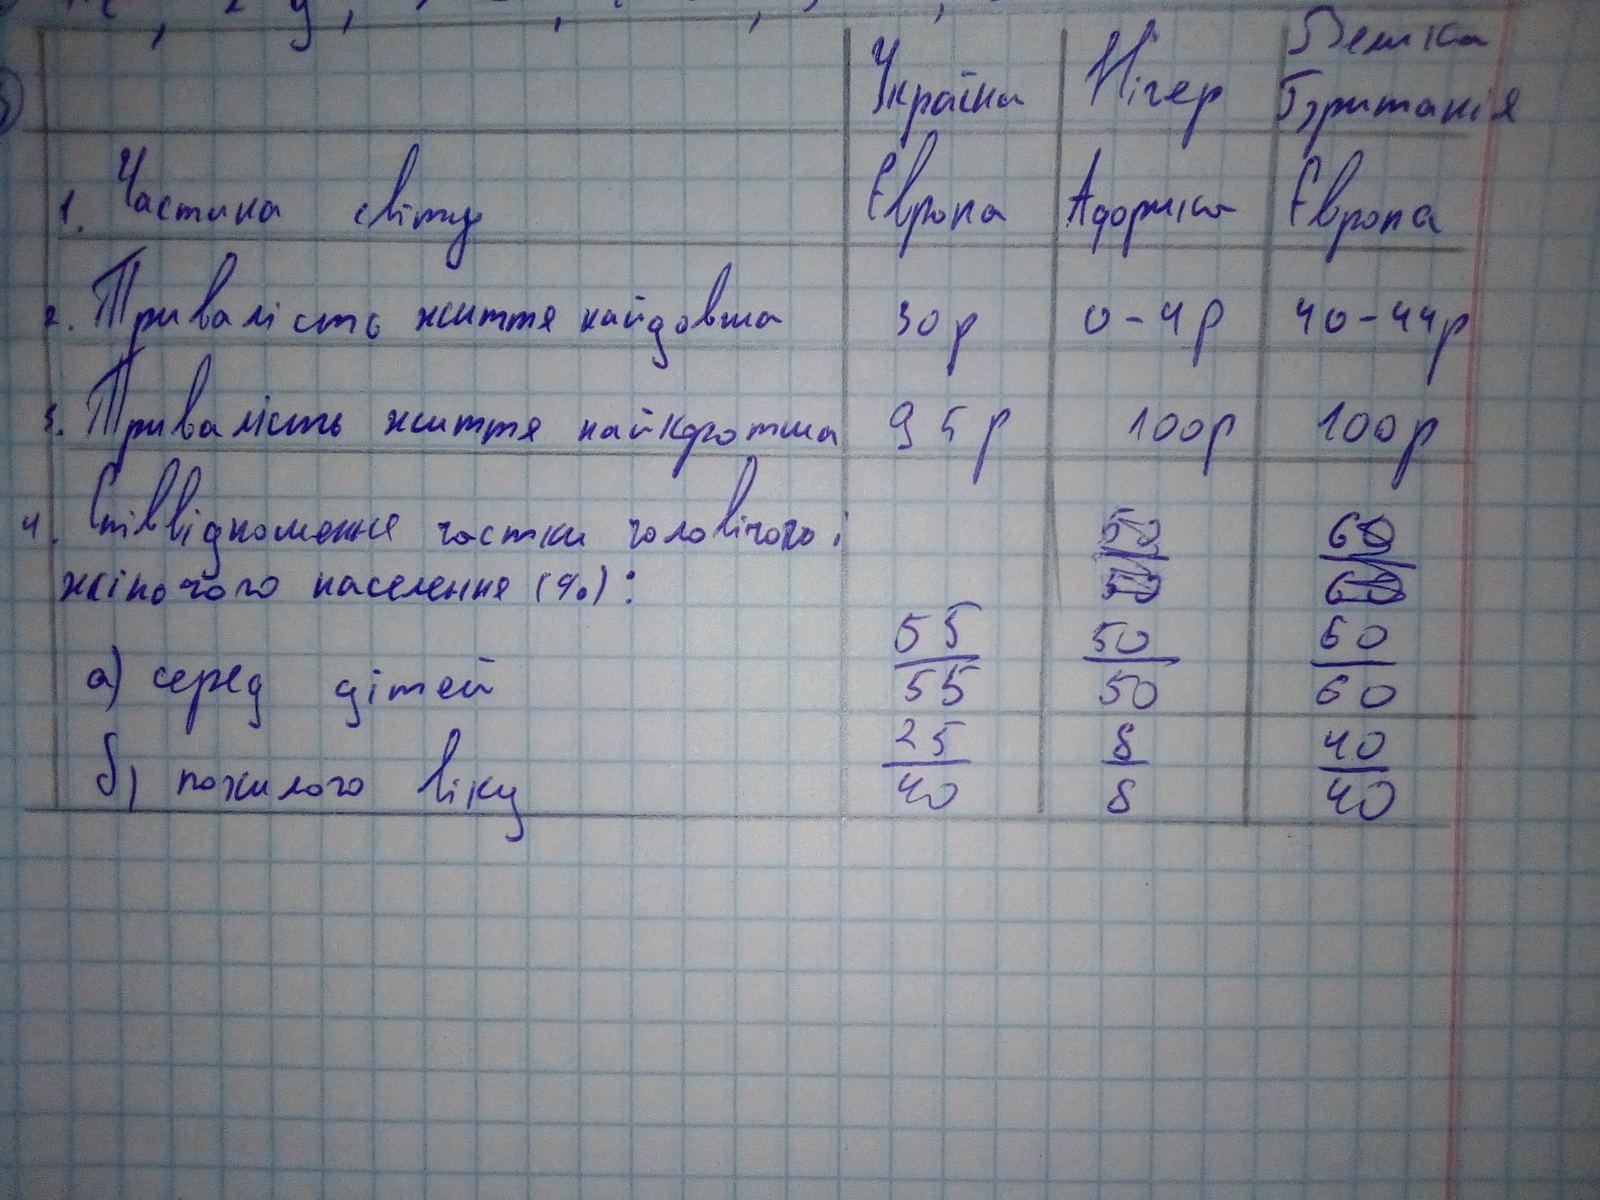 Україна Нігер Велика
Британія
1. Частина світу Європа Африка Європа
2. Тривалість життя найдовша 30р 0-4р 40-44р
3. Тривалість життя найкоротша 95р 100р 100р
4. Співвідношення частки чоловічого і
жіночого населення (%):
а) серед дітей 55/55 50/50 60/60
б) похилого віку 25/40 8/8 40/40